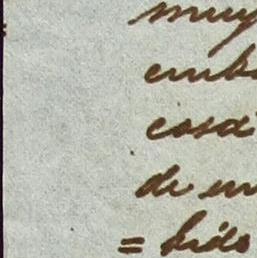 muy
emb
cosa
de
= bido